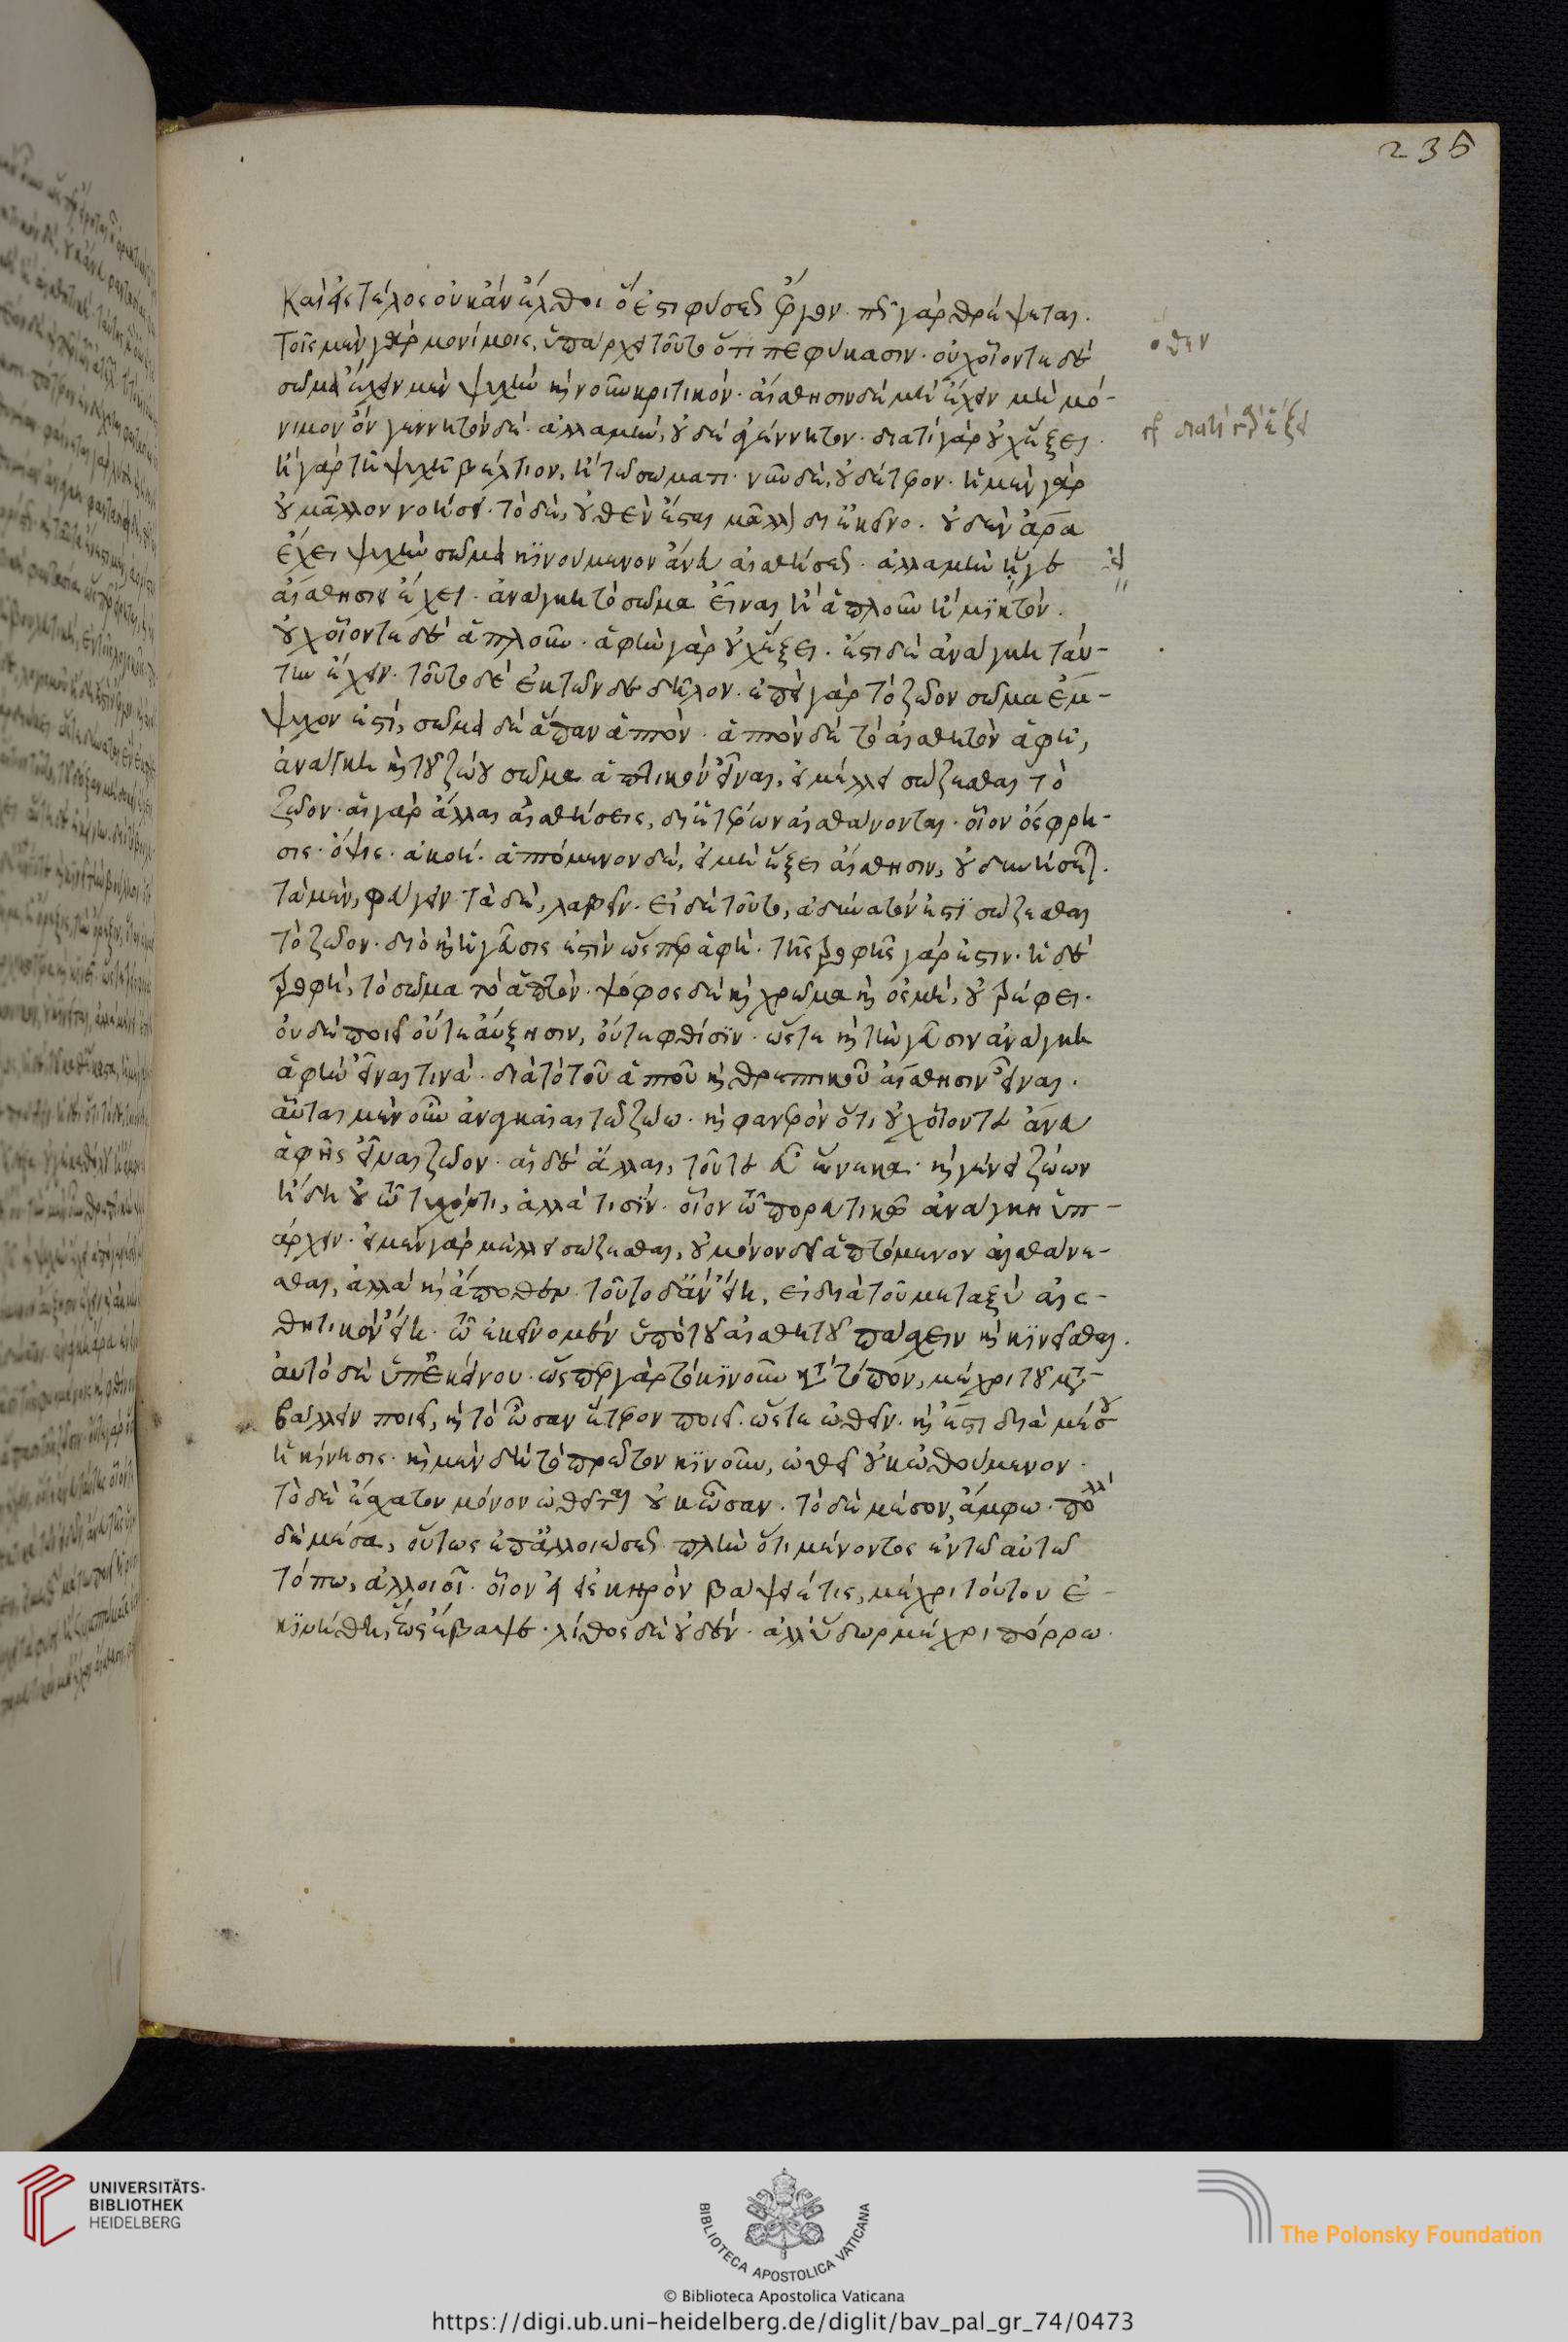 235
Καὶ εἰς τέλος οὐκ ἂν ἔλθοι ὅ ἐστι φύσεως ἔργον· πῶς γὰρ θρέψεται·
Τοῖς μὲν γὰρ μονίμοις, ὑπάρχει τοῦτο ὅτι πεφύκασιν· οὐχ οἷόν τε δὲ
σῶμα ἔχειν μὲν ψυχὴν καὶ νοῦν κριτικόν· αἴσθησιν δὲ μὴ ἔχειν μὴ μό-
νιμον ὂν γεννητὸν δέ· ἀλλὰ μὴν, οὐδὲ ἀγέννητον· διατί γὰρ οὐχ ἕξει·
ἢ γὰρ τῇ ψυχῇ βέλτιον, ἢ τῷ σώματι· νῦν δὲ, οὐδέτερον· ἡ μὲν γὰρ
οὐ μᾶλλον νοήσει· τὸ δὲ, οὐθὲν ἔσται μᾶλλον δι' ἐκεῖνο· οὐδὲν ἄρα
ἔχει ψυχὴν σῶμα κινούμενον ἄνευ αἰσθήσεως· ἀλλὰ μὴν εἴγε
αἴσθησιν ἔχει· ἀνάγκη τὸ σῶμα εἶναι ἢ ἁπλοῦν ἢ μικτόν·
οὐχ οἷόν τε δὲ ἁπλοῦν· ἁφὴν γὰρ οὐχ ἕξει· ἔστι δὲ ἀνάγκη ταύ-
την ἔχειν· τοῦτο δὲ ἐκ τῶνδε δῆλον· ἐπεὶ γὰρ τὸ ζῷον σῶμα ἔμ-
ψυχόν ἐστι, σῶμα δὲ ἅπαν ἁπτόν· ἁπτὸν δὲ τὸ αἰσθητὸν ἁφῇ,
ἀνάγκη καὶ τοῦ ζῴου σῶμα ἁπτικὸν εἶναι, εἰ μέλλει σώζεσθαι τὸ
ζῷον· αἱ γὰρ ἄλλαι αἰσθήσεις, δι' ἑτέρων αἰσθάνονται· οἷον ὄσφρη-
σις· ὄψις· ἀκοή· ἁπτόμενον δὲ, εἰ μὴ ἕξει αἴσθησιν, οὐ δυνήσεται
τὰ μὲν, φεύγειν τὰ δὲ, λαβεῖν· εἰ δὲ τοῦτο, ἀδύνατόν ἐστι σώζεσθαι
τὸ ζῷον· διὸ καὶ ἡ γεῦσις ἐστὶν ὥσπερ ἁφή· τῆς τροφῆς γάρ ἐστιν· ἡ δὲ
τροφὴ, τὸ σῶμα τὸ ἁπτόν· ψόφος δὲ καὶ χρῶμα καὶ ὀσμὴ, οὐ τρέφει·
οὐδὲ ποιεῖ οὔτε αὔξησιν, οὔτε φθίσιν· ὥστε καὶ τὴν γεῦσιν ἀνάγκη
ἁφὴν εἶναι τινά· διὰ τὸ τοῦ ἁπτοῦ καὶ θρεπτικοῦ αἴσθησιν εἶναι·
αὗται μὲν οὖν ἀναγκαῖαι τῷ ζῴῳ· καὶ φανερὸν ὅτι οὐχ οἷόν τε ἄνευ
ἁφῆς εἶναι ζῷον· αἱ δὲ ἄλλαι, τοῦτε εὖ ἕνεκα· καὶ γένει ζῴων
ἤδη οὐ τῷ τυχόντι, ἀλλὰ τισίν· οἷον τῷ πορευτικῷ ἀνάγκη ὑπ-
άρχειν· εἰ μὲν γὰρ μέλλει σώζεσθαι, οὐ μόνον δεῖ ἁπτόμενον αἰσθάνε-
σθαι, ἀλλὰ καὶ ἄποθεν· τοῦτο δ' ἂν εἴη, εἰ διὰ τοῦ μεταξὺ αἰσ-
θητικὸν εἴη· τῷ ἐκεῖνο μὲν ὑπὸ τοῦ αἰσθητοῦ πάσχειν καὶ κινεῖσθαι·
αὐτὸ δὲ ὑπ' ἐκείνου· ὥσπερ γὰρ τὸ κινοῦν κατὰ τόπον, μέχρι του μετα-
βάλλειν ποιεῖ, καὶ τὸ ὦσαν ἕτερον ποιεῖ· ὥστε ὠθεῖν· καὶ ἔστι διὰ μέσου
ἡ κίνησις· καὶ μὲν δὴ τὸ πρῶτον κινοῦν, ὠθεῖ οὐκ ὠθούμενον·
τὸ δὲ ἔσχατον μόνον ὠθεῖται οὐκ ὦσαν· τὸ δὲ μέσον, ἄμφω· πολλὰ
δὲ μέσα, οὕτως ἐπ' ἀλλοιώσεως· πλὴν ὅτι μένοντος ἐν τῷ αὐτῷ
τόπῳ, ἀλλοιοῖ· οἷον εἰ εἰς κηρὸν βάψειέ τις, μέχρι τούτου ἐ-
κινήθη, ἕως ἔβαψε· λίθος δὲ οὐδέν· ἀλλ' ὕδωρ μέχρι πόρρω·
ὅθεν
UNIVERSITÄTS-
BIBLIOTHEK
HEIDELBERG
BIBLIOTECA APOSTOLICA VATICANA
The Polonsky Foundation
© Biblioteca Apostolica Vaticana
https://digi.ub.uni-heidelberg.de/diglit/bav_pal_gr_74/0473